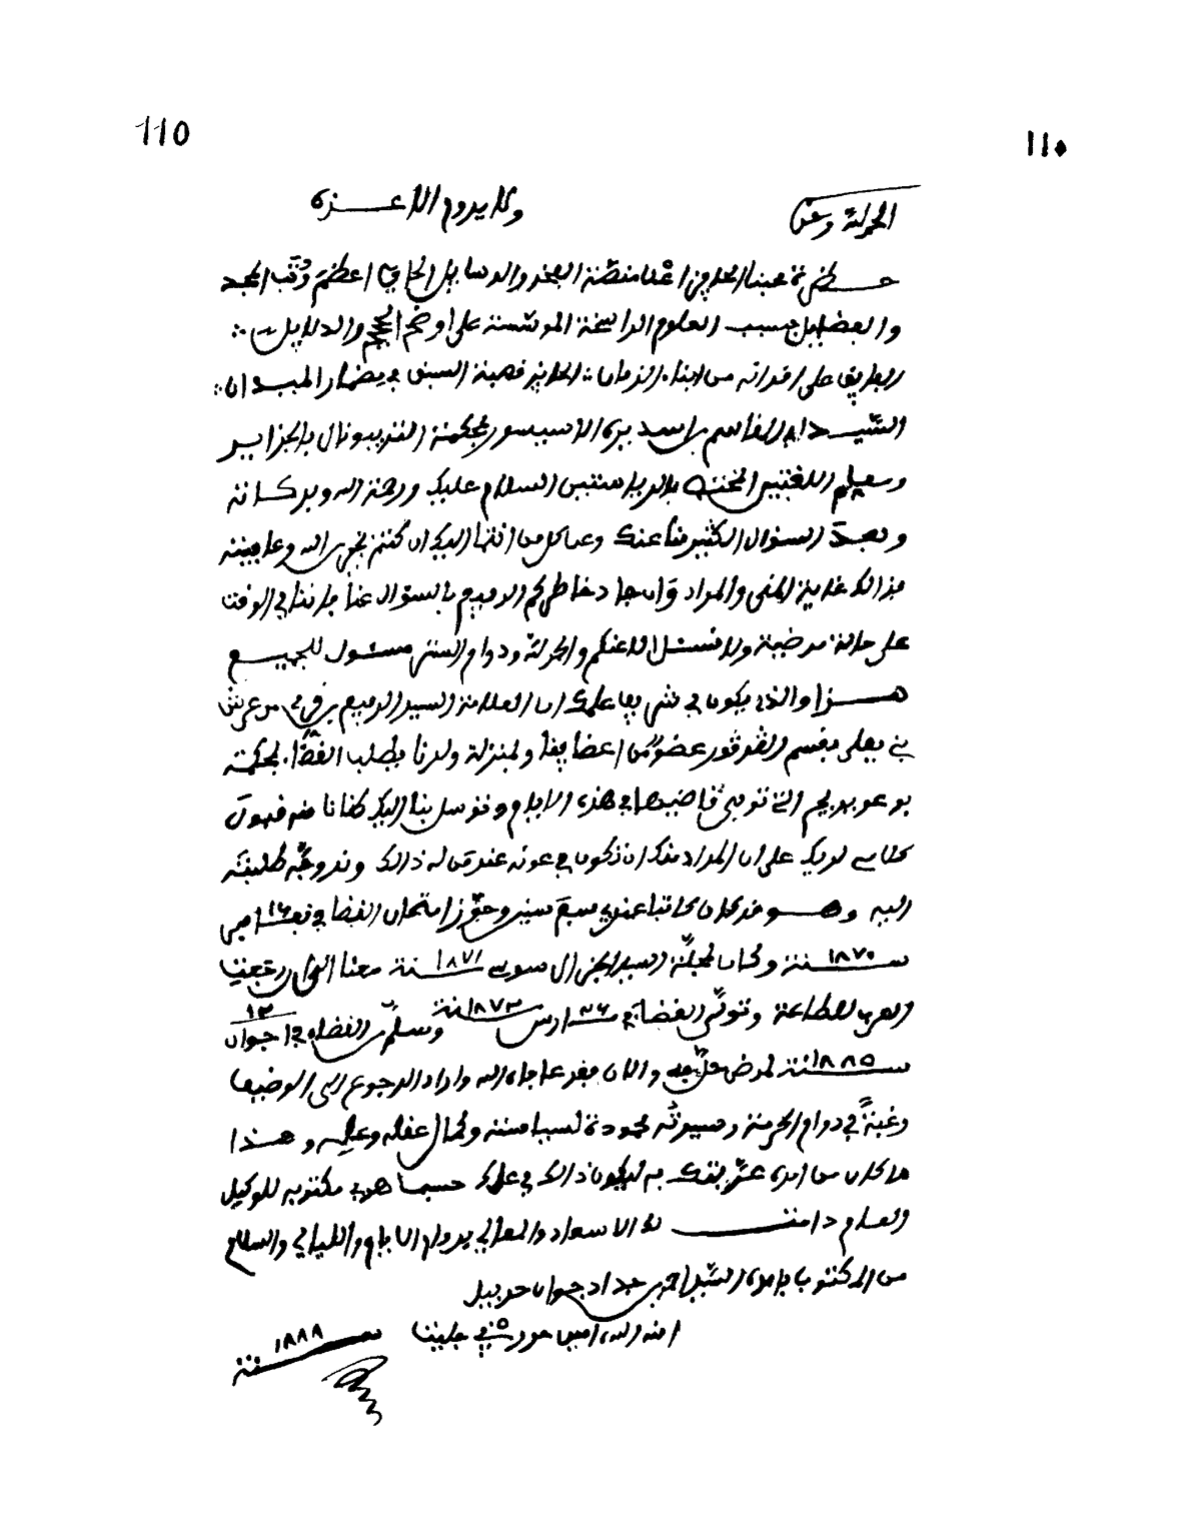 110 ١١٠
الحمد لله وحده ولا يدوم الا عزه
حضرة محبنا الحاوي اعلا منصة الفخر والوسايل الحاوي اعظم رتب المجد
والفضايل بسبب العلوم الراسخة الموسسة على اوضح الحجج والدلايل
الفايق على اقرانه من ابناء الزمان الحايز قصبة السبق في مضمار الميدان
السيد ابو القاسم بن اسديرة الاسيسور بمحكمة التريبونال بالجزاير
ومعلم اللغتين السلام عليك ورحمة الله وبركاته
وبعد السؤال الكثير منا عنك وعن كل من انتما اليك ان كنتم بخير الله وعافيته
فذالك غاية المنى والمراد وان جاد خاطركم الرفيع بالسؤال عنا فاننا في الوقت
على حالة مرضية ولا نسئل الا عنكم والحمد لله ودوام الستر مسئول للجميع
هذا والذي يكون في شريف علمك ان العلامة السيد الربيع بن من عرش
بني يعلى بقسم القرقور عضو من اعضايها ولمنزلة ولدنا يطلب القضا بمحكمة
بوعريريج التي توفي قاضيها في هذه الايام وتوسل بنا اليك
لديك على ان المراد منك ان تكون في عونه عند من له ذالك
اليه وهو قد كان كاتبا عندي سبع سنين وحوز امتحان القضا في ١٦ مي
سنة ١٨٧٠ وكان بمحلة السيد الجنرال سوسي سنة ١٨٧١ معنا الى ان رجعت
العرب للطاعة وتولى القضا في ٢٦ مارس سنة ١٨٧٣ وسلم من القضا في ١٣ جوان
سنة ١٨٨٥ لمرض حل به والان فقد عافاه الله واراد الرجوع الى الوضيف
رغبة في دوام الحرمة وسيرته محمودة لسياسته وكمال عقله وعلمه وهذا
ما كان من امره عرفتك به ليكون ذالك في علمك حسبما هو مكتوب للوكيل
العام دامت لك الاسعاد والمعالي بدوام الايام والليالي والسلام
من المكتوب بامره السيد احمد بن جداد جوان
امنه الله امين
سنة ١٨٨٨